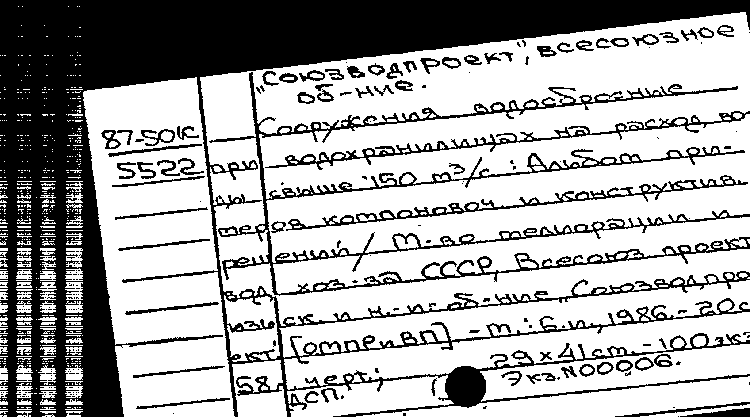 „Союзводпроект", всесоюзное
об-ние.
87-50К Сооружения водосбросные
5522 при водохранилищах на расход во
ды свыше 150 м³/с : Альбом при-
меров компоновоч и конструктив.
решений / М-во мелиорации и
вод. хоз-ва СССР, Всесоюз. проект
изыск. и н.-и. об-ние „Союзводпро
ект" [ОМПРиВП] - м. : Б.и., 1986. - 20с
58л. черт.; 29 × 41 см. - 100 экз
ДСП. ( Экз.N00006.